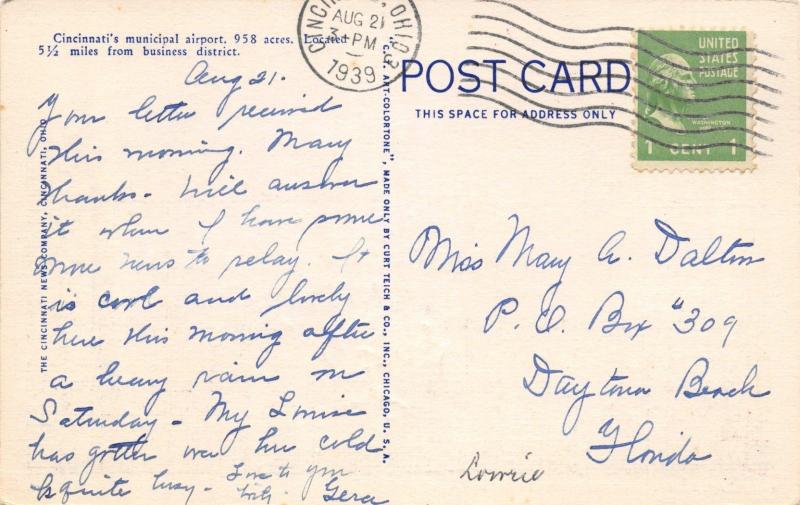 Cincinnati's municipal airport. 958 acres. Located
5½ miles from business district.
Aug 21.
Your letter received
this morning. Many
thanks - will answer
it when I have some
more news to relay. It
is cool and lovely
here this morning after
a heavy rain on
Saturday - My Louise
has gotten over her cold
& quite busy - Love to you
THE CINCINNATI NEWS COMPANY, CINCINNATI, OHIO
"C.T. ART-COLORTONE", MADE ONLY BY CURT TEICH & CO., INC., CHICAGO, U. S. A.
CINCINNATI, OHIO
AUG 21
PM
1939
POST CARD
THIS SPACE FOR ADDRESS ONLY
UNITED
STATES
POSTAGE
WASHINGTON
1 CENT 1
Miss Mary A. Dalton
P. O. Box #309
Daytona Beach
Florida
Lowrie